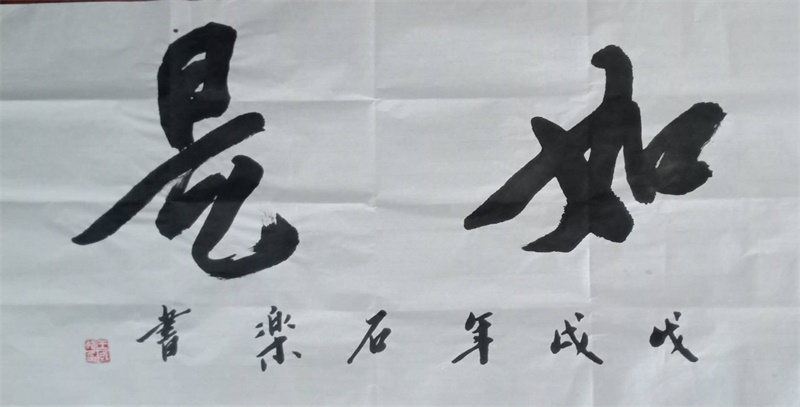 如是
戊戌年石樂書